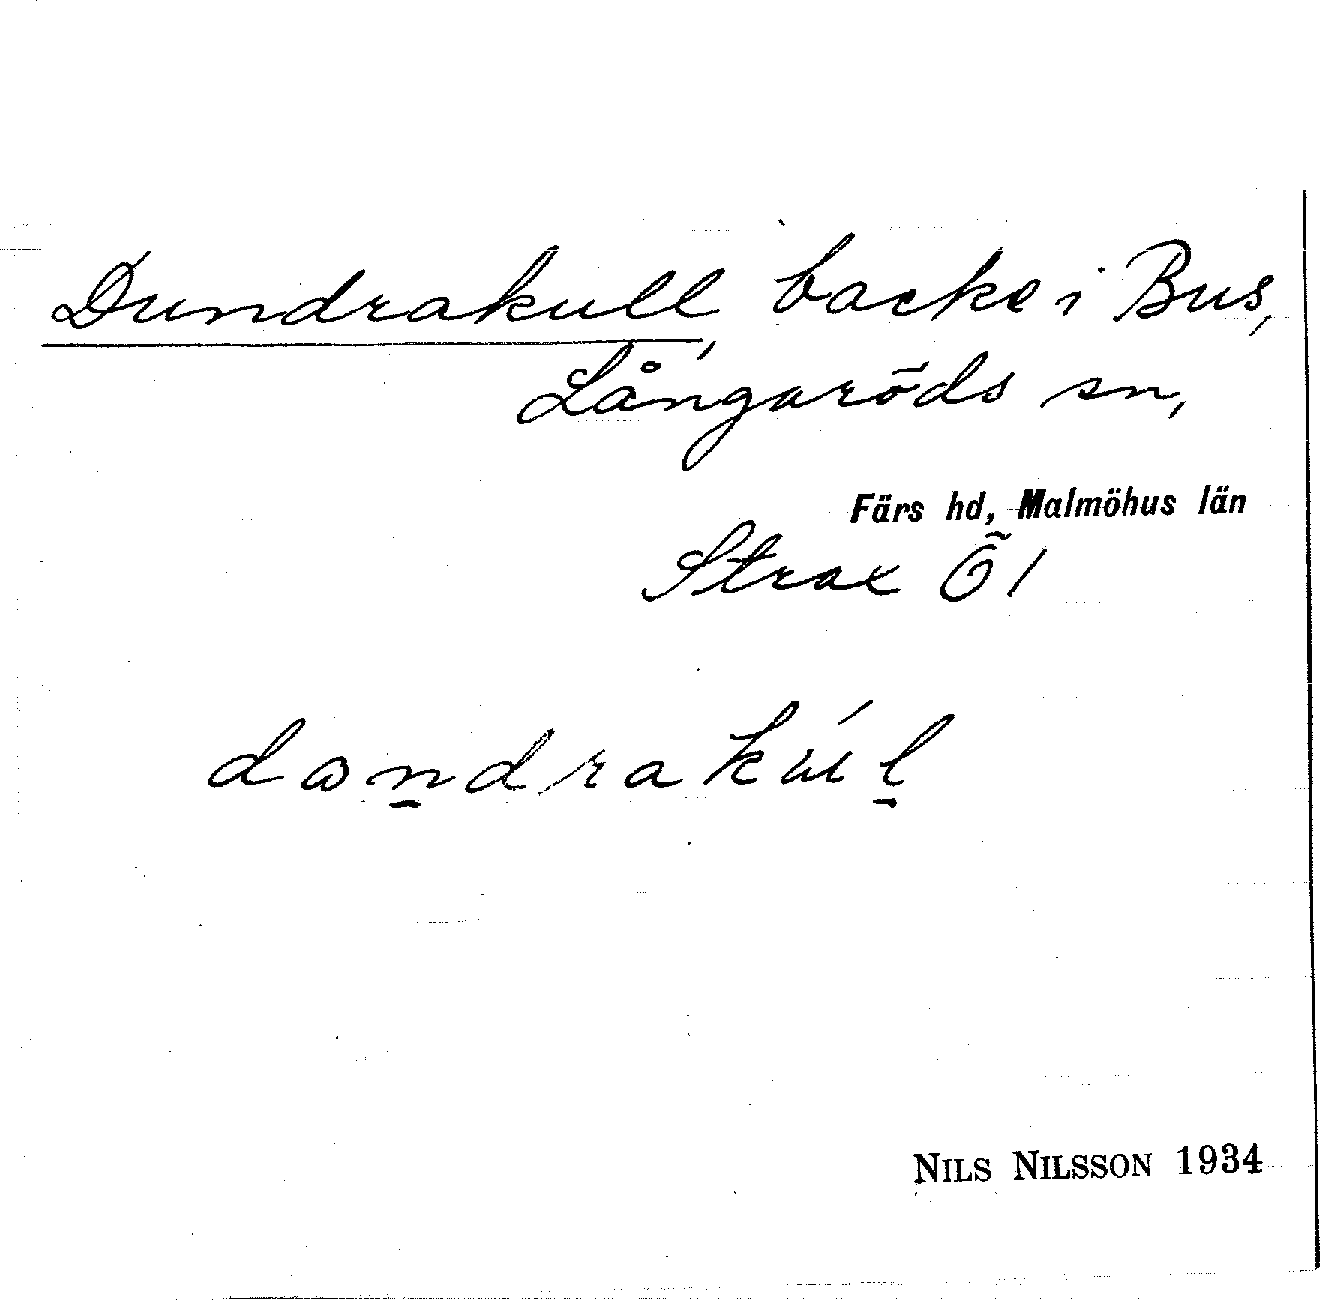 Dundrakull, backe i Bus,
Långaröds sn,
Färs hd, Malmöhus län
Strax Ö/
dωn̲drakúl̲
NILS NILSSON 1934